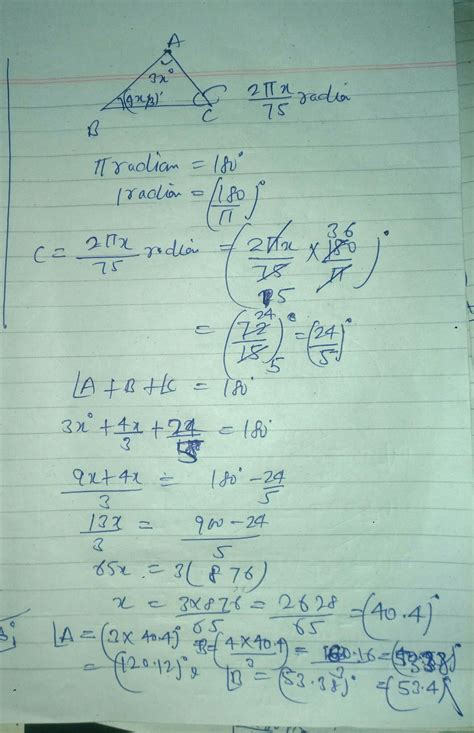 A
3x°
(4x/3)°
B
C
2πx/75 radian
π radian = 180°
1 radian = (180/π)°
C = 2πx/75 radian = (2πx/75 × 180/π)° 36 15
= (72/15)° 24 5 = (24/5)°
∠A + B + ∠C = 180°
3x° + 4x/3 + 24/5 = 180°
9x+4x/3 = 180° - 24/5
13x/3 = 900-24/5
65x = 3(876)
x = 3×876/65 = 2628/65 = (40.4)°
∠A = (2×40.4)° B = (4×40.4/3)° = 160.16/3 =
= (120.12)°, ∠B = (53.38)° = (53.4)°